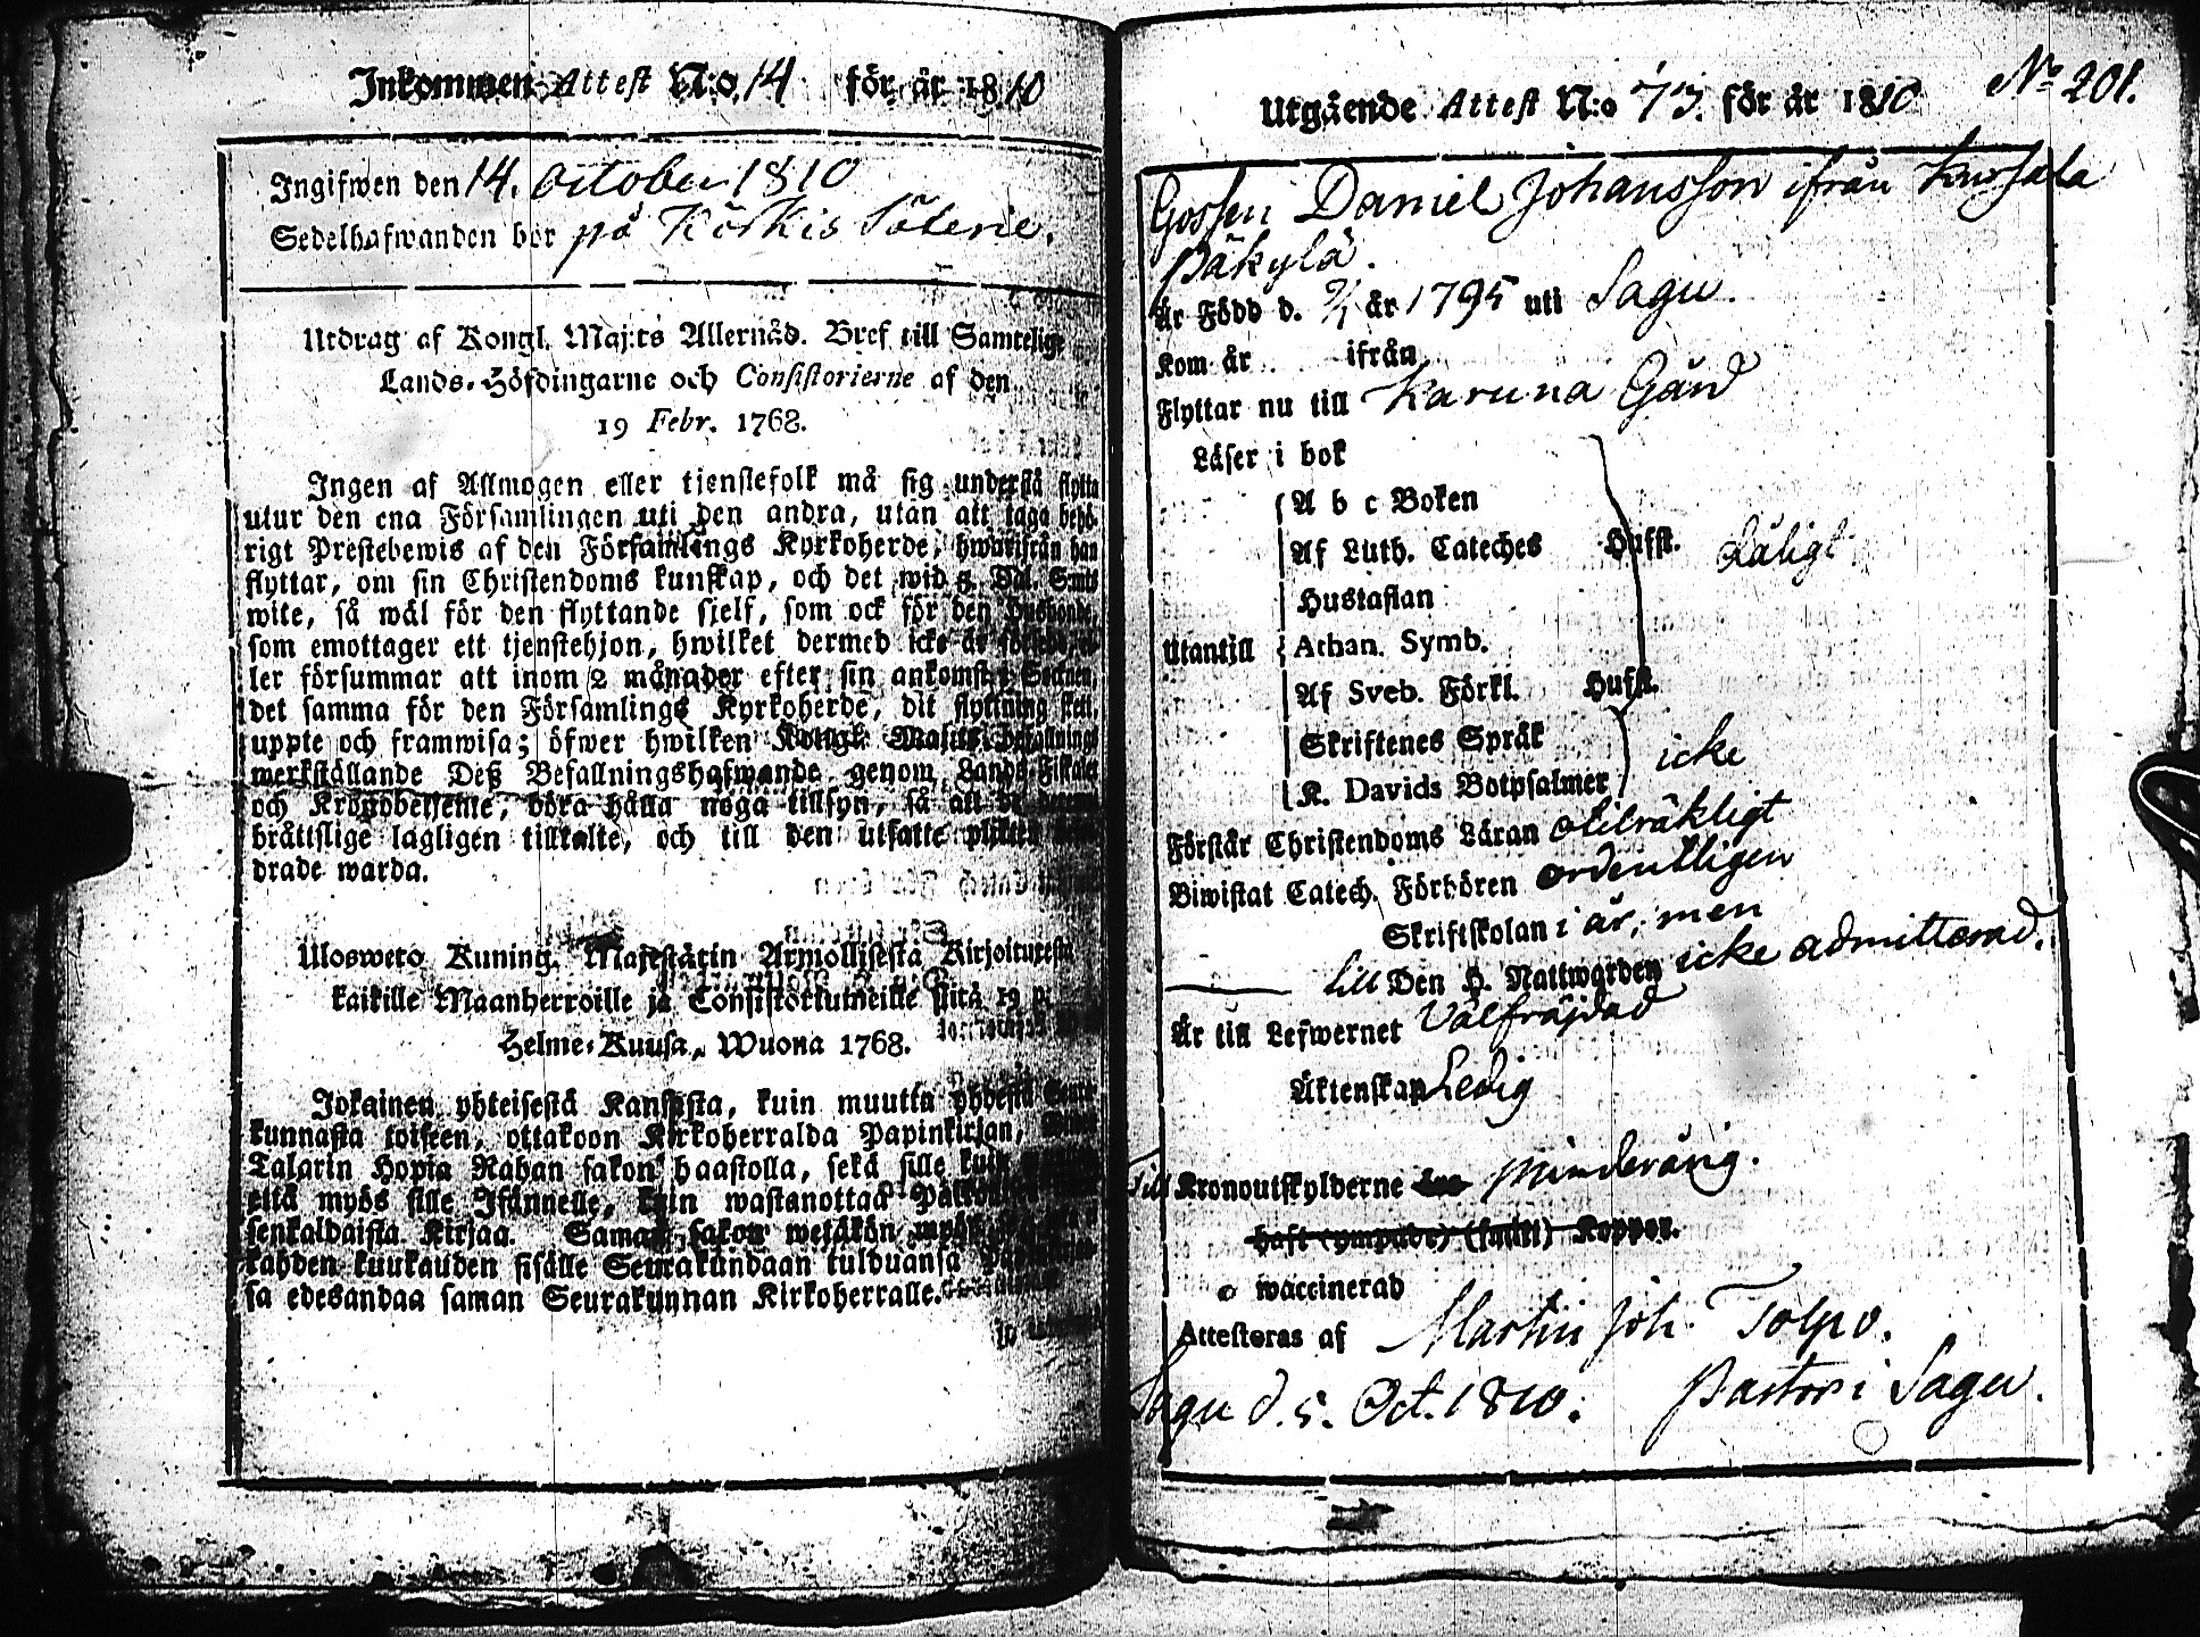 Inkommen Attest N:o 14 för år 1810
Ingifwen den 14. October 1810
Sedelhafwanden bor på Körkis Säterie.
Utdrag af Kongl. Maj:ts Allernåd. Bref till Samtelige
Lands-Höfdingarne och Consistorierne af den
19 Febr. 1768.
Ingen af Allmogen eller tjenstefolk må sig understå flytta
utur den ena Församlingen uti den andra, utan att taga behö-
rigt Prestebewis af den Församlings Kyrkoherde, hwarifrån han
flyttar, om sin Christendoms kunskap, och det wid 5. Dal. S:mts
wite, så wäl för den flyttande sjelf, som ock för den Husbonde,
som emottager ett tjenstehjon, hwilket dermed icke är
ler försummar att inom 2 månader efter sin ankomst i Socknen,
det samma för den Församlings Kyrkoherde, dit flyttning skett,
uppte och framwisa; öfwer hwilken Kongl. Maj:ts Befallnings
werkställande Deß Befallningshafwande genom Lands-Fiskaler
och Kronobetjente, böra hålla noga tillsyn, så att de
bråttslige lagligen tilltalte, och till den utsatte plikten
drade warda.
Ulosweto Kuning. Majestätin Armollisesta Kirjoituxesta
kaikille Maanherroille ja Consistoriumeille siitä 19 p.
Helme-Kuusa, Wuona 1768.
Jokainen yhteisestä Kansasta, kuin muutta yhdestä Seura-
kunnasta toiseen, ottakoon Kirkoherralda Papinkirjan,
Talarin Hopia Rahan sakon haastolla, sekä sille kuin
että myös sille Isännelle, kuin wastanottaa
senkaldaista Kirjaa. Saman sakon wetäkön myös
kahden kuukauden sisälle Seurakundaan tulduansa
sa edesandaa saman Seurakunnan Kirkoherralle.
No 201.
Utgående Attest N:o 73. för år 1810
Gossen Daniel Johansson ifrån
Päkylä.
Är Född d. 9/1 år 1795 uti Sagu.
Kom år ifrån
Flyttar nu till Karuna Gård
Läser i bok
A b c Boken
Af Luth. Cateches Hufst. dåligt
Hustaflan
Utantill Athan. Symb.
Af Sveb. Förkl. Hufst.
Skriftenes Språk
K. Davids Botpsalmer icke
Förstår Christendoms Läran otilräkligt
Biwistat Catech. Förhören ordentligen
Skriftskolan i år, men
till Den H. Nattwarden icke admitterad.
Är till Lefwernet Välfräjdad
Äktenskap Ledig
Till Kronoutskylderne minderårig.
haft (ympade) (smitt) Koppor.
o waccinerad
Attesteras af Martin Joh. Tolpo.
Sagu d. 5. Oct. 1810. Pastor i Sagu.